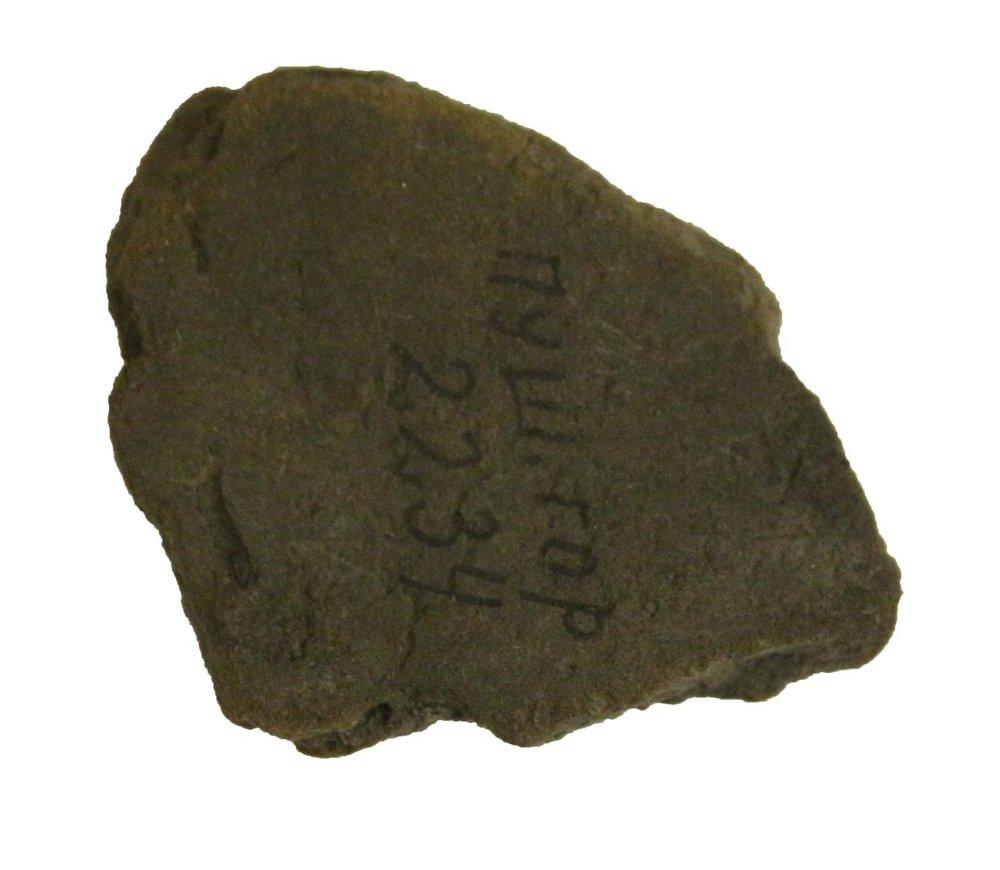 пуш.гор
2234